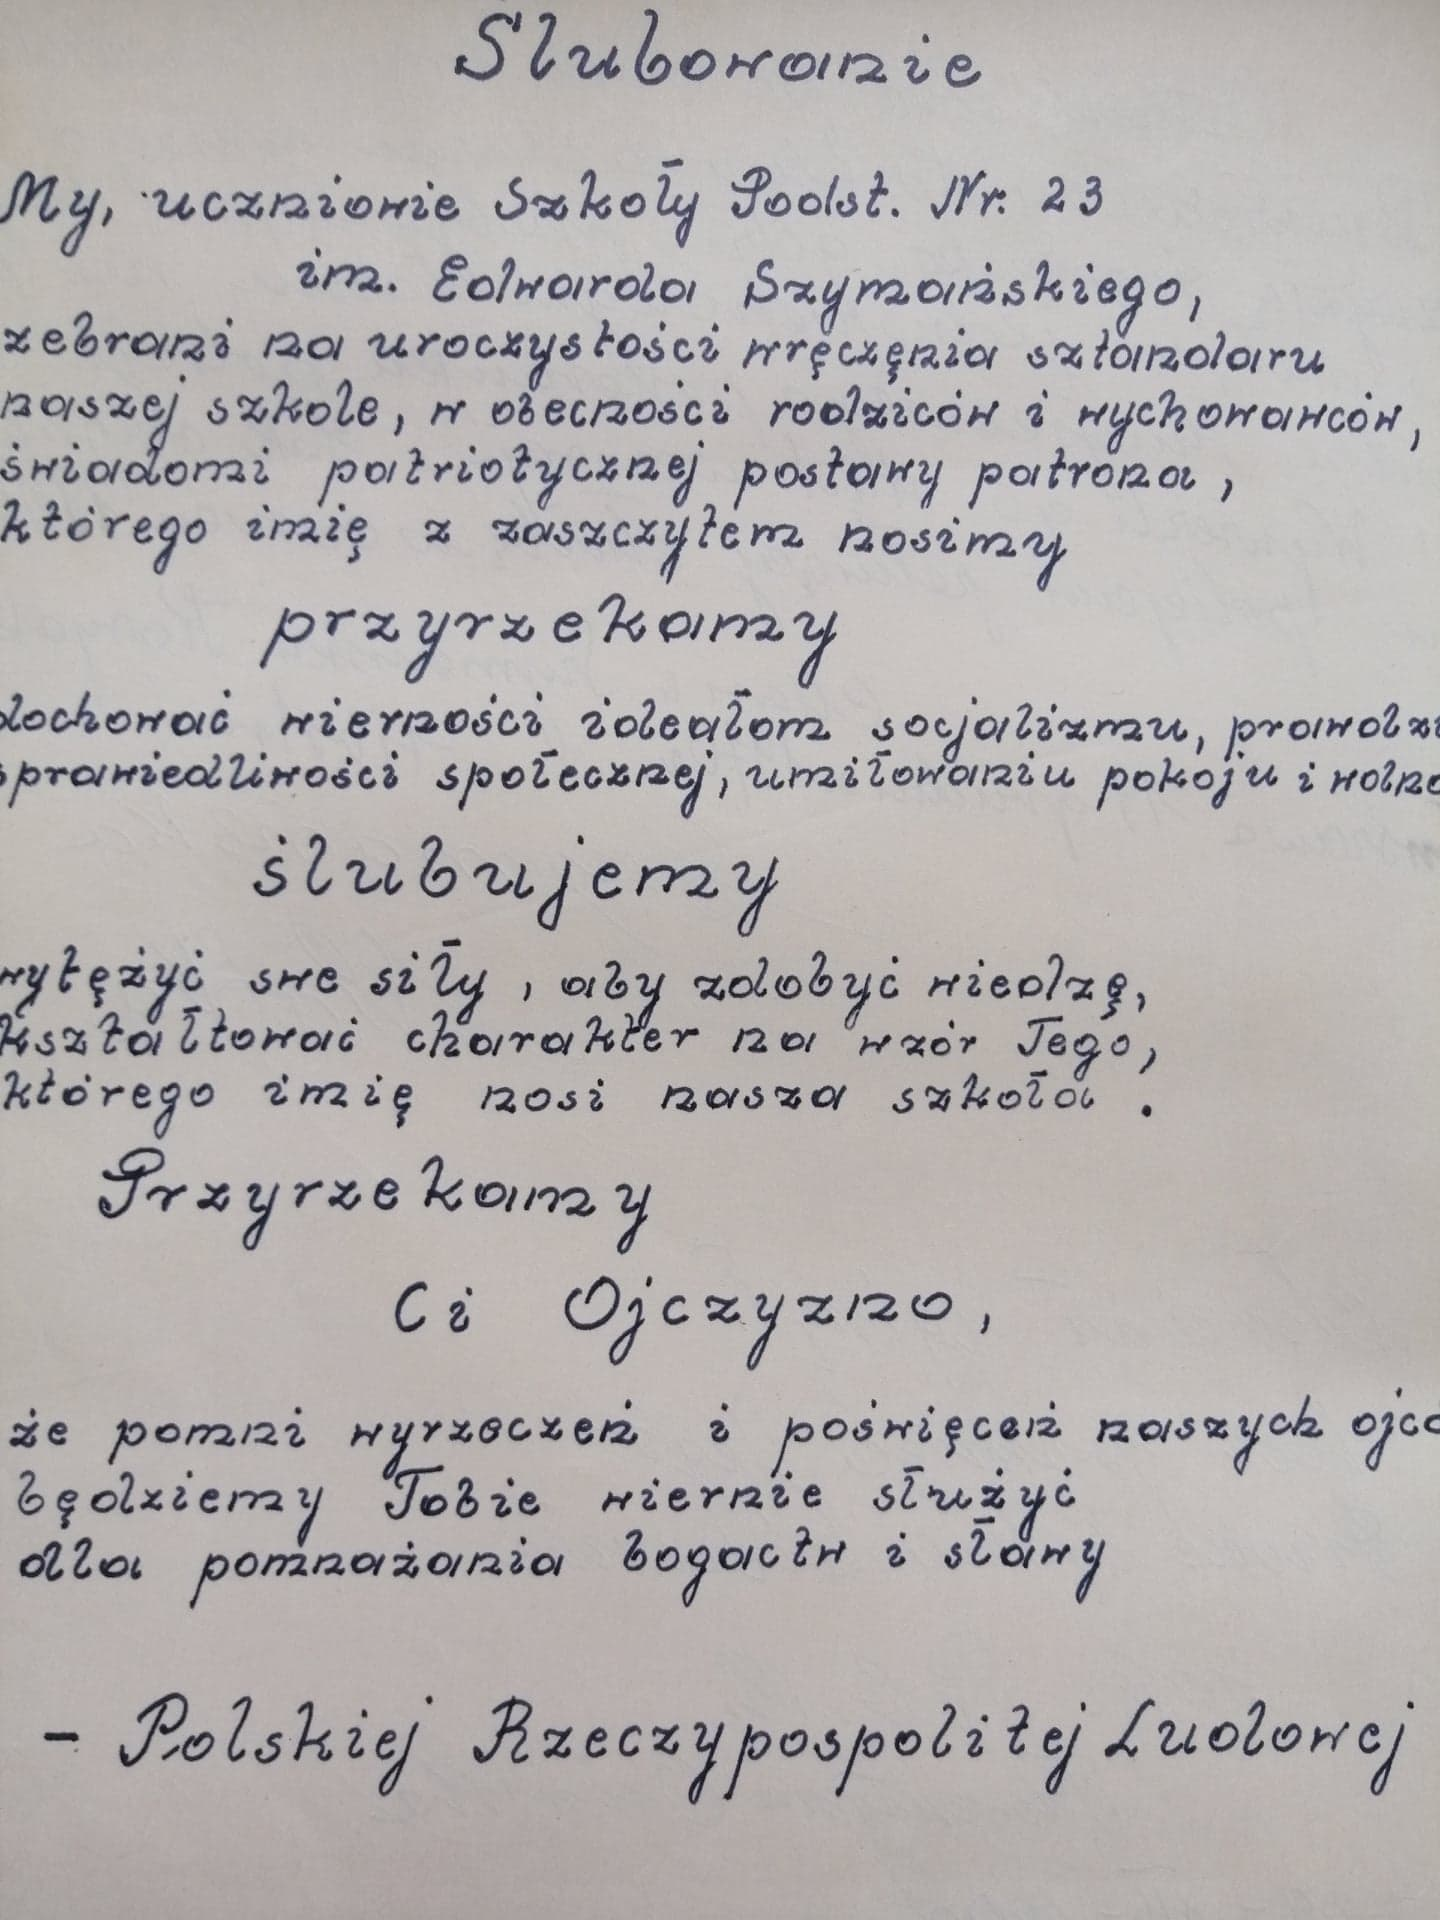 Ślubowanie
My, uczniowie Szkoły Podst. Nr. 23
im. Edwarda Szymańskiego,
zebrani na uroczystości wręczęnia sztandaru
naszej szkole, w obecności rodziców i wychowawców,
świadomi patriotycznej postawy patrona,
którego imię z zaszczytem nosimy
przyrzekamy
dochować wierności ideałom socjalizmu, prawdzi
sprawiedliwości społecznej, umiłowaniu pokoju i wolno
ślubujemy
wytężyć swe siły, aby zdobyć wiedzę,
kształtować charakter na wzór Tego,
którego imię nosi nasza szkoła.
Przyrzekamy
Ci Ojczyzno,
że pomni wyrzeczeń i poświęceń naszych ojcó
będziemy Tobie wiernie służyć
dla pomnażania bogactw i sławy
- Polskiej Rzeczypospolitej Ludowej